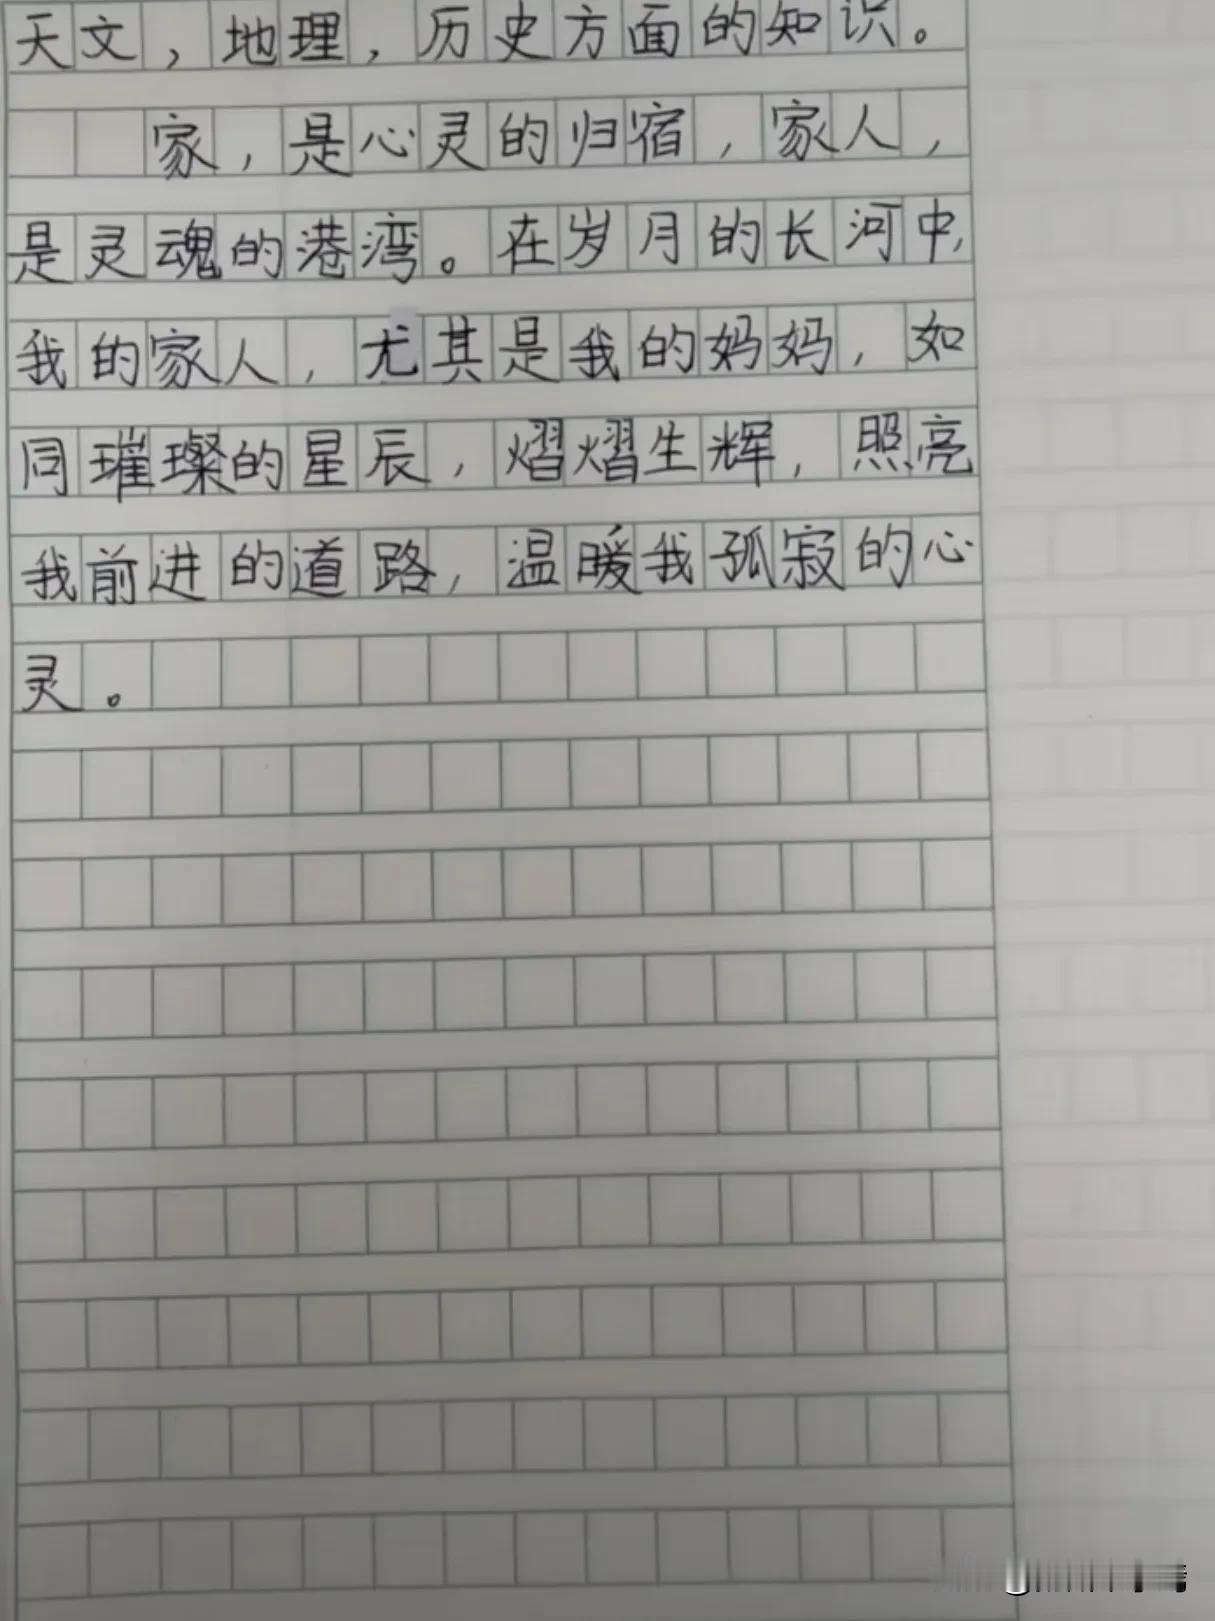 天文，地理，历史方面的知识。
家，是心灵的归宿，家人，
是灵魂的港湾。在岁月的长河中，
我的家人，尤其是我的妈妈，如
同璀璨的星辰，熠熠生辉，照亮
我前进的道路，温暖我孤寂的心
灵。